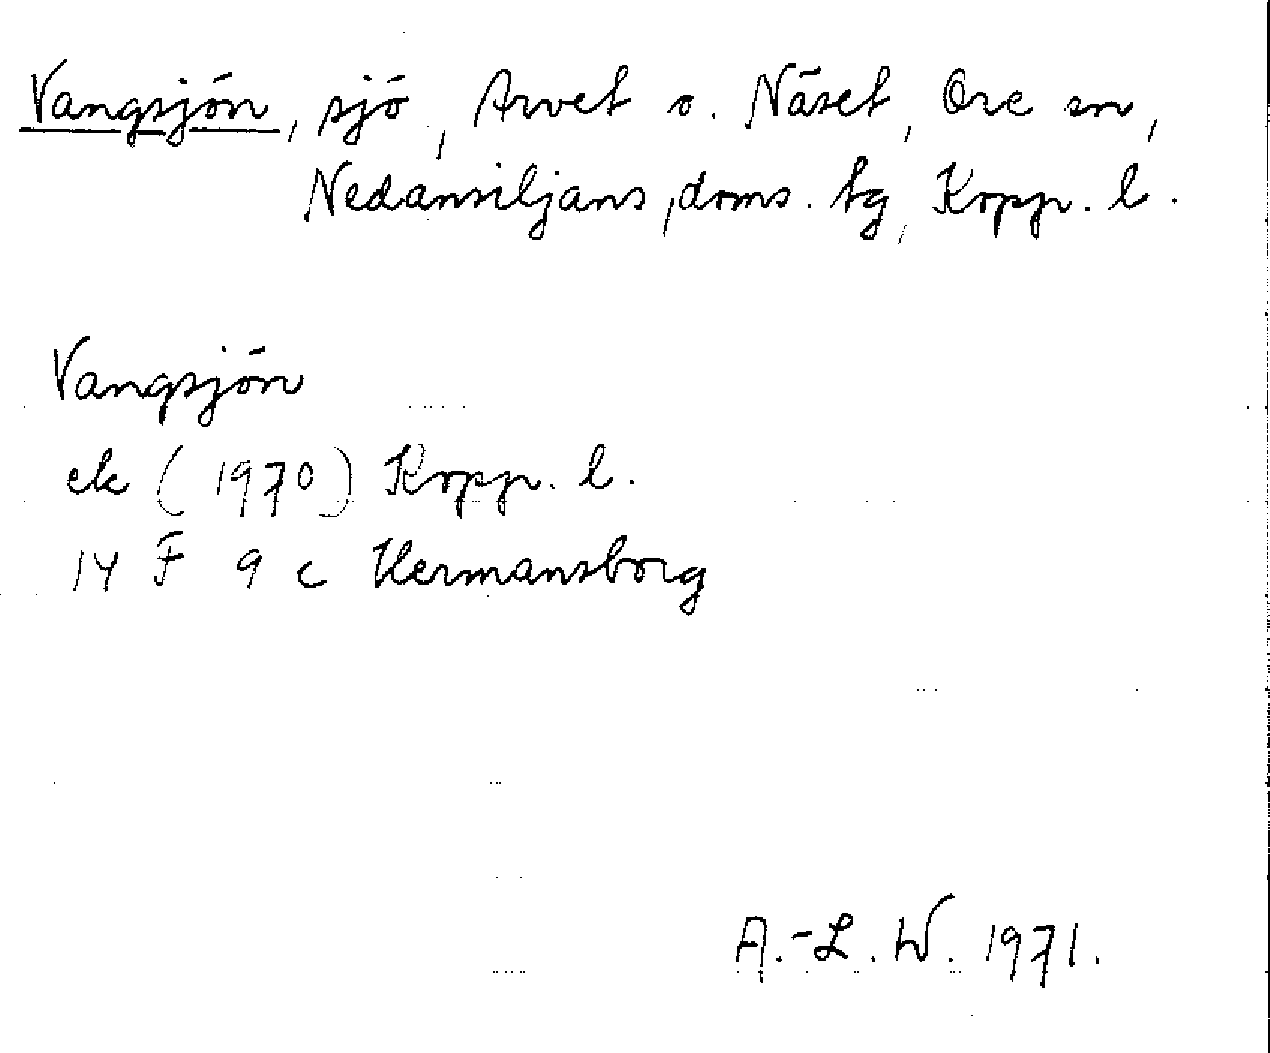 Vangsjön, sjö, Arvet o. Näset, Ore sn,
Nedansiljans doms. tg, Kopp. l.
Vangsjön
ek (1970) Kopp. l.
14 F 9 c Hermansborg
A.-L. W. 1971.